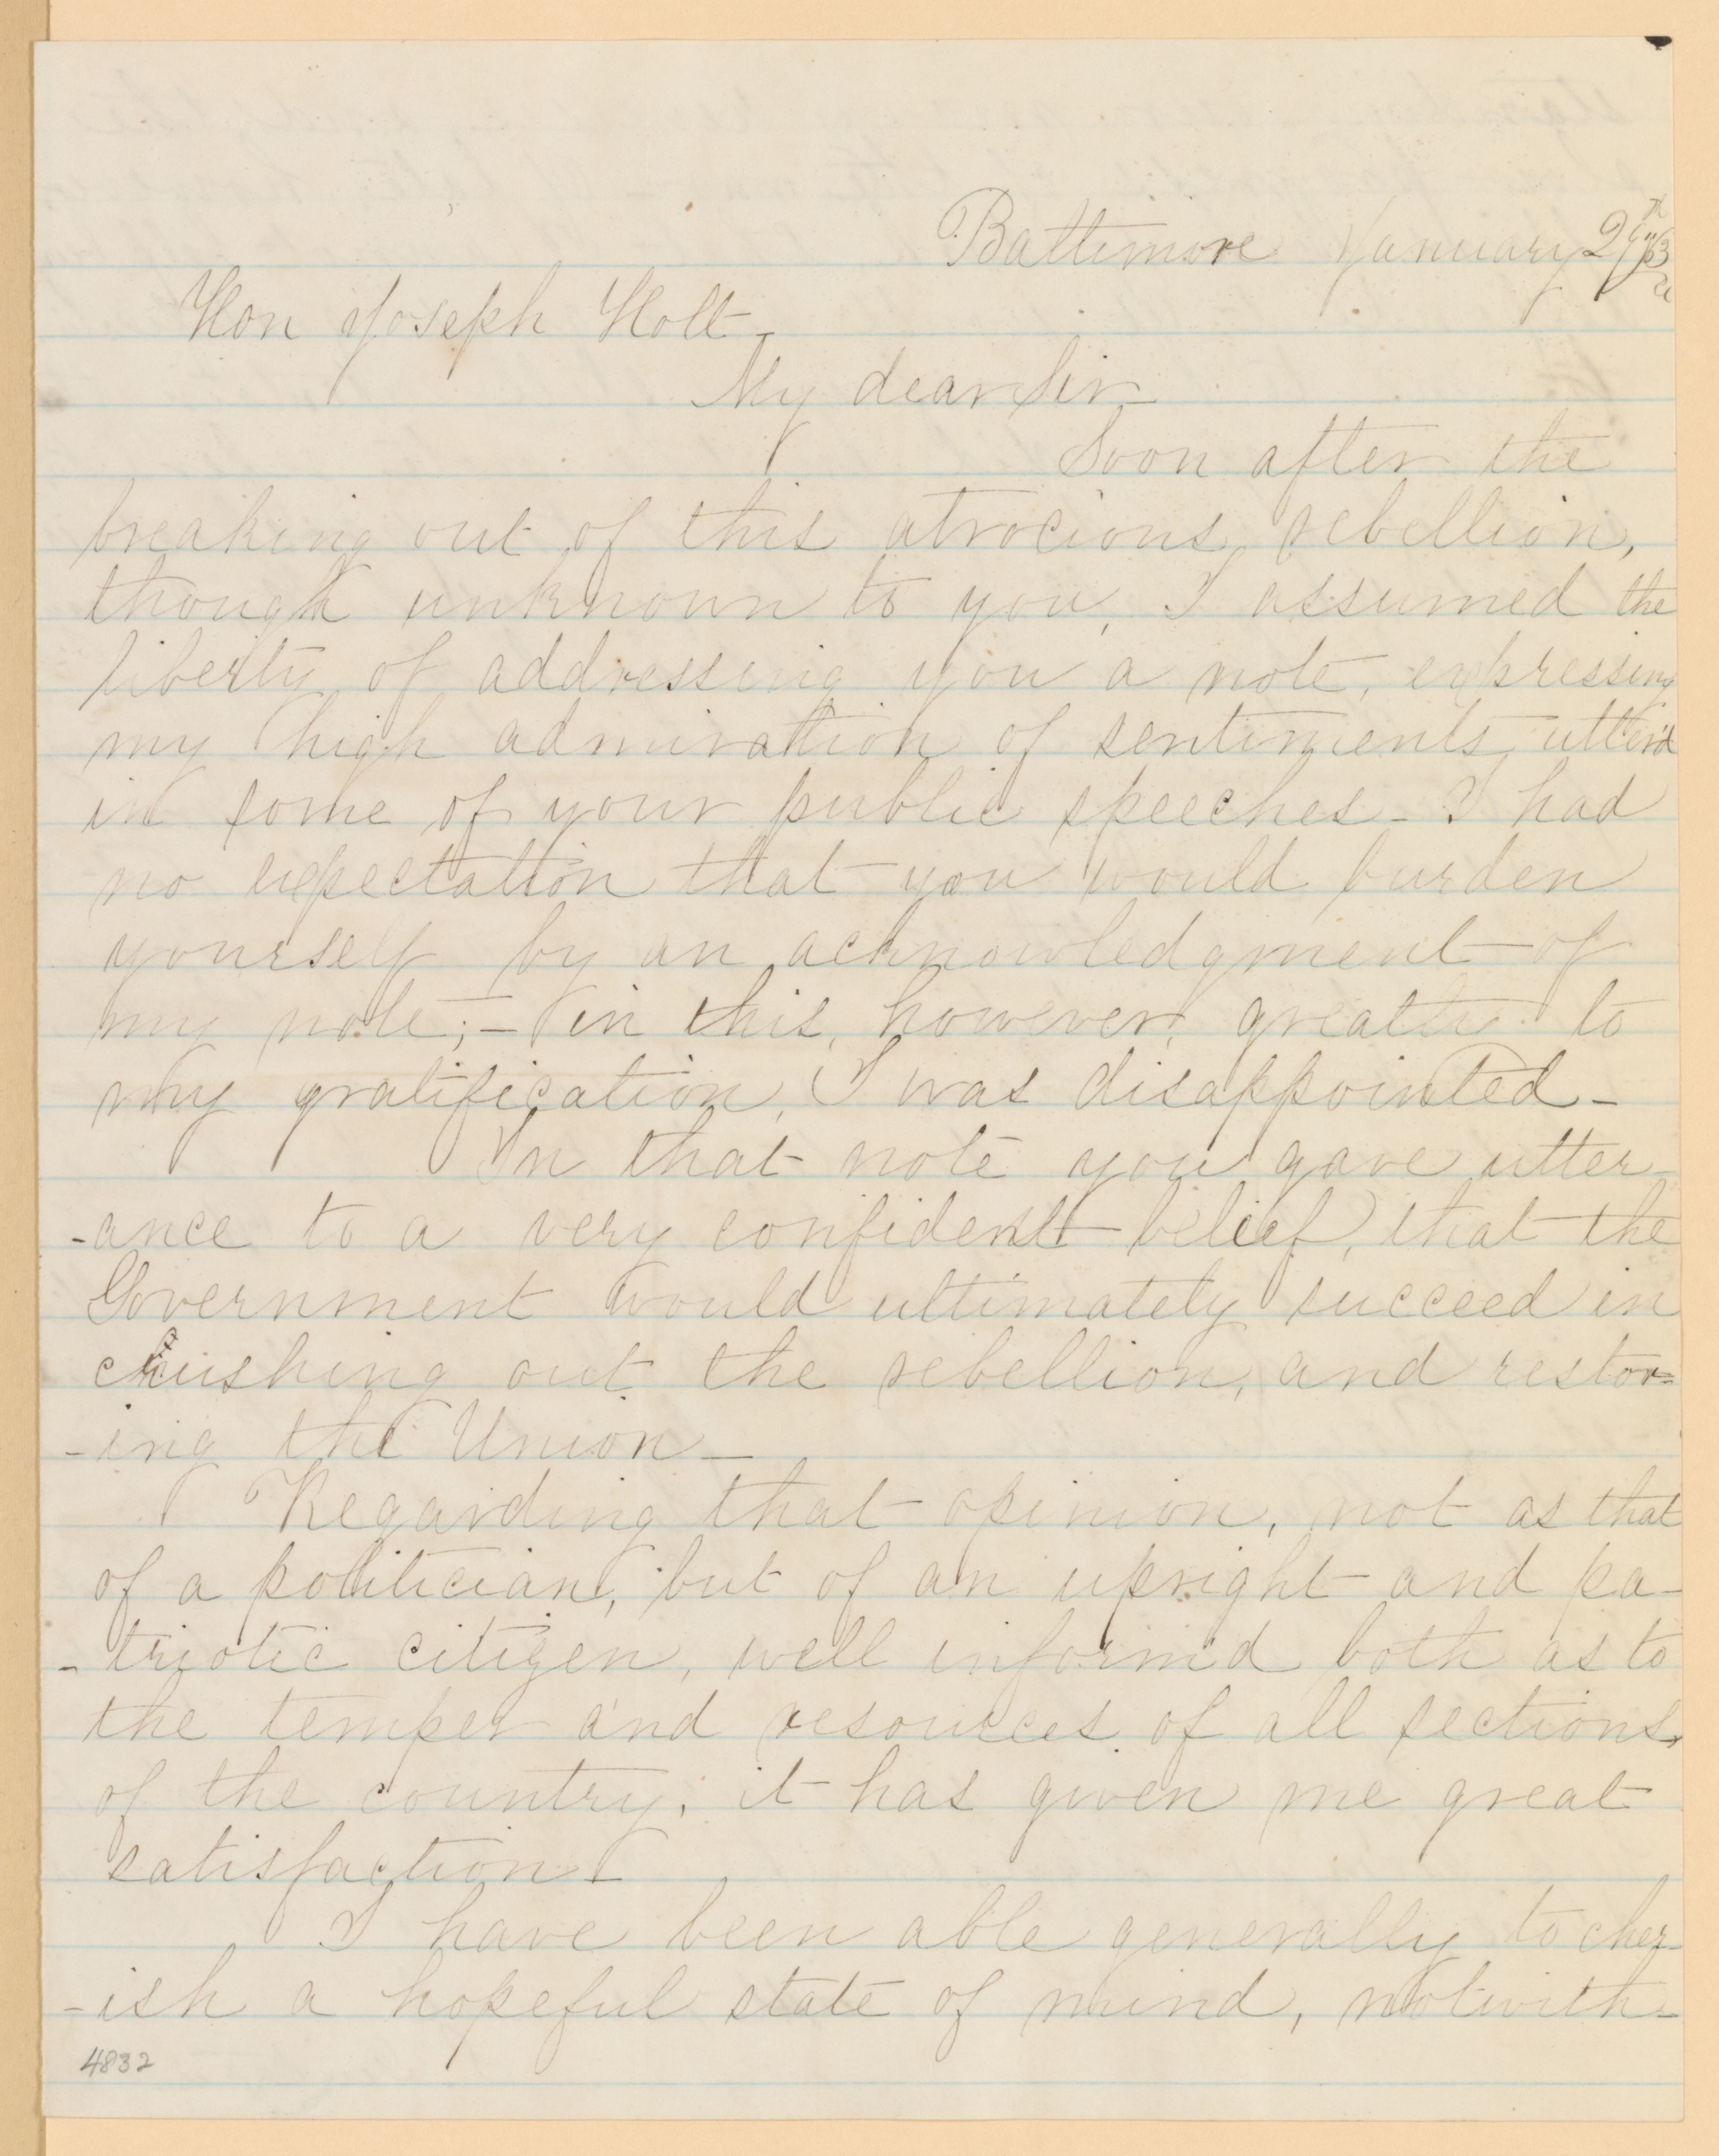 Baltimore January 29th 63
Hon Joseph Holt
My dear Sir
Soon after the
breaking out of this atrocious rebellion,
though unknown to you, I assumed the
liberty of addressing you a note, expressing
my high admiration of sentiments utter'd
in some of your public speeches - I had
no expectation that you would burden
yourself by an acknowledgment of
my note; - in this, however, greatly to
my gratification, I was disappointed -
In that note you gave utter-
-ance to a very confident belief, that the
Government would ultimately succeed in
crushing out the rebellion, and restor=
-ing the Union -
Regarding that opinion, not as that
of a politician, but of an upright and pa-
-triotic citizen, well inform'd both as to
the temper and resources of all sections
of the country, it has given me great
satisfaction -
I have been able generally to cher-
-ish a hopeful state of mind, notwith-
4832